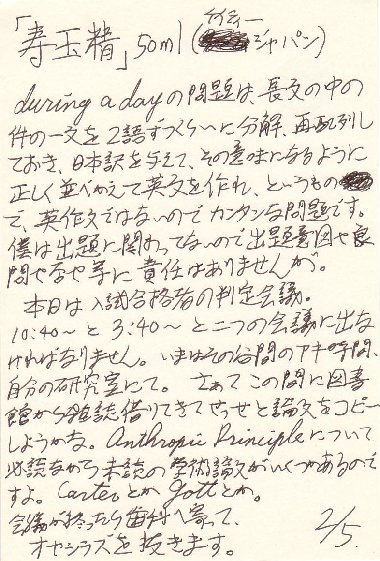 「寿玉精」50ml(ケイティージャパン)
during a day の問題は、長文の中の
件の一文を2語ずつくらいに分解、再配列し
ておき、日本訳を与えて、その意味になるように
正しく並べかえて英文を作れ、というもの
で、英作文ではないのでカンタンな問題です。
僕は出題に関わってないので出題意図や良
問や否や等に責任はありませんが。
本日は入試合格者の判定会議。
10:40～と3:40～と二つの会議に出な
ければなりません。いまはその谷間のアキ時間、
自分の研究室にて。さあてこの間に図書
館から雑誌借りてきてせっせと論文をコピー
しようかな。Anthropic Principleについて
必読ながら未読の学術論文がいくつかあるので
すよ。CarterとかGottとか。
会議が終ったら歯科へ寄って、
オヤシラズを抜きます。
2/5.